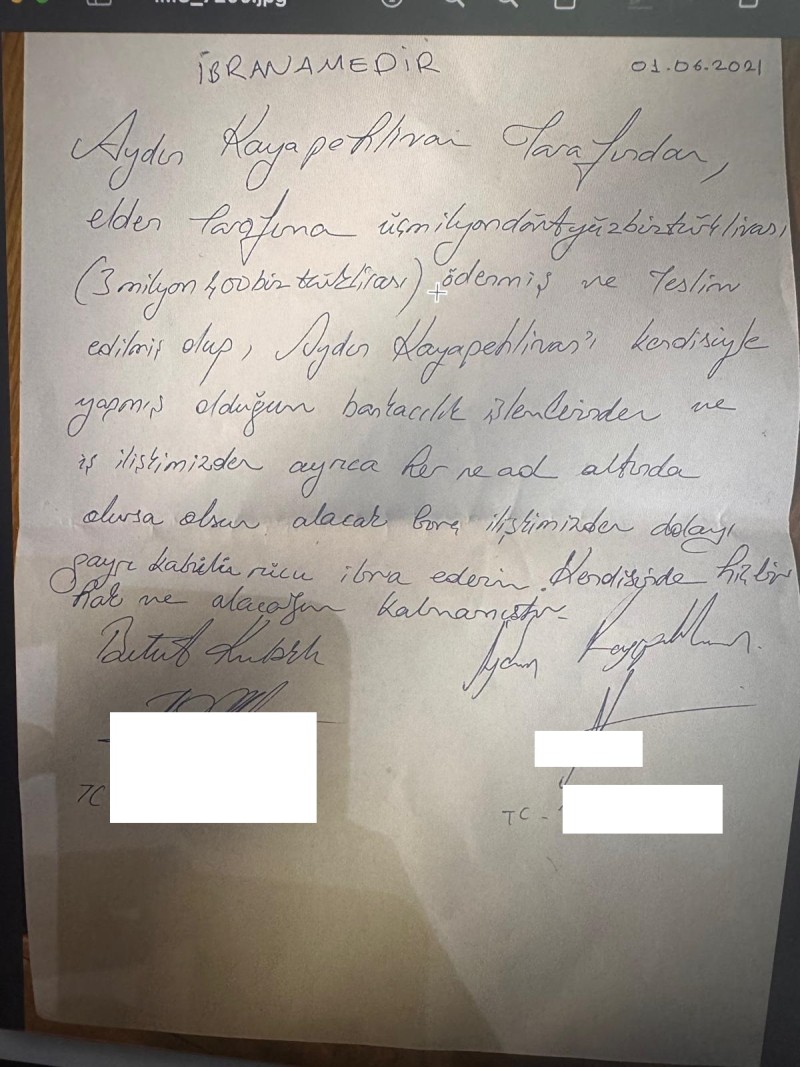 İBRANAMEDİR 01.06.2021
Aydın Kayapehlivan Tarafından,
elden tarafıma üçmilyondörtyüzbintürklirası
(3 milyon 400 bin türklirası) ödenmiş ve Teslim
edilmiş olup, Aydın Kayapehlivan'ı kendisiyle
yapmış olduğum bankacılık işlemlerinden ve
iş ilişkimizden ayrıca her ne ad altında
olursa olsun alacak borç ilişkimizden dolayı
gayri kabili rücu ibra ederim. Kendisinde hiçbir
hak ve alacağım kalmamıştır.
Aydın Kayapehlivan
TC
TC -